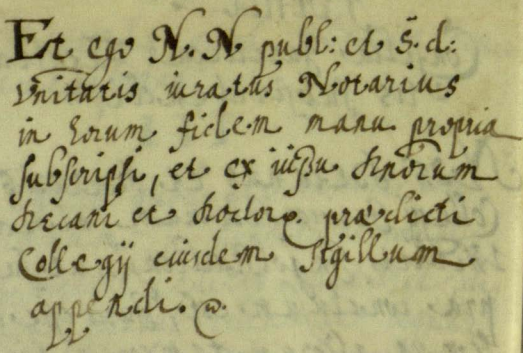 Et ego N. N publ: et S. d:
Vnitatis iuratus Notarius
in horum fidem manu propria
subscripsi, et ex iussu dnorum
decani et doctor. prædicti
Collegij eiusdem sigillum
appendi.